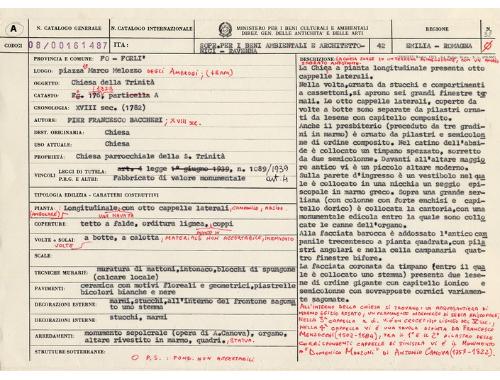 A
N. CATALOGO GENERALE
N. CATALOGO INTERNAZIONALE
MINISTERO PER I BENI CULTURALI E AMBIENTALI
DIREZ. GEN. DELLE ANTICHITÀ E BELLE ARTI
REGIONE
N.
CODICI
08/00161487
ITA:
SOPR.PER I BENI AMBIENTALI E ARCHITETTO-
NICI - RAVENNA
42
EMILIA - ROMAGNA
PROVINCIA E COMUNE: FO - FORLI'
LUOGO: piazza Marco Melozzo DEGLI AMBROGI;
OGGETTO: Chiesa della Trinità
CATASTO: Fg. 176, particella A
CRONOLOGIA: XVIII sec. (1782)
AUTORE: PIER FRANCESCO BACCHERI; XVIII sec.
DEST. ORIGINARIA: Chiesa
USO ATTUALE: Chiesa
PROPRIETÀ: Chiesa parrocchiale della S. Trinità
VINCOLI
LEGGI DI TUTELA: art. 4 legge 1° giugno 1939, n. 1089/1939 art. 4
P.R.G. E ALTRI: Fabbricato di valore monumentale
TIPOLOGIA EDILIZIA - CARATTERI COSTRUTTIVI
PIANTA: Longitudinale con otto cappelle laterali
UNA NAVATA
COPERTURE: tetto a falde, orditura lignea, coppi
VOLTE o SOLAI: a botte, a calotta, MATERIALE NON ACCERTABILE,
VOLTE
SCALE:
TECNICHE MURARIE: muratura di mattoni, intonaco, blocchi di spungone
(calcare locale)
PAVIMENTI: ceramica con motivi floreali e geometrici, piastrelle
bicolori bianche e nere
DECORAZIONI ESTERNE: marmi, stucchi, all'interno del frontone sagoma
to uno stemma
DECORAZIONI INTERNE: stucchi, marmi
ARREDAMENTO: monumento sepolcrale (opera di A.Canova), organo,
altare rivestito in marmo, quadri, STATUA.
STRUTTURE SOTTERRANEE:
P.S.: FOND. NON ACCERTABILI
DESCRIZIONE:
La Chiesa a pianta longitudinale presenta otto
cappelle laterali.
Nella volta, ornata da stucchi e compartimenti
a cassettoni, si aprono sei grandi finestre ter
mali. Le otto cappelle laterali, coperte da
volte a botte sono separate da pilastri ornati
da lesene con capitello composito.
Anche il presbiterio (preceduto da tre gradi-
ni in marmo) è ornato da pilastri e semicolon
ne di ordine composito. Nel catino dell'absi-
de è collocato un timpano spezzato, sorretto
da due semicolonne. Davanti all'altare maggio
re antico vi è un piccolo altare moderno.
Sulla parete d'ingresso è un vestibolo nel qua
le è collocato in una nicchia un seggio epi-
scopale in marmo greco. Sopra una grande ser-
liana (con colonne con forte enchiri e capi-
tello dorico) è collocata la cantoria, con una
monumentale edicola entro la quale sono collo-
cate le canne dell'organo.
Alla facciata barocca è addossato l'antico cam
panile trecentesco a pianta quadrata, con pila
stri angolari e nella cella campanaria quat-
tro finestre bifore.
La facciata coronata da timpano (entro il qua
le è collocato uno stemma) presenta due lese-
ne di ordine gigante con capitello ionico e
semicolonne con soprastanti cornici variamen-
te sagomate.
ALL'INTERNO DELLA CHIESA SI TROVANO: UN ACQUASANTIERA DI
MARMO
"DOMENICO MANZONI" DI ANTONIO CANOVA (1757-1822).